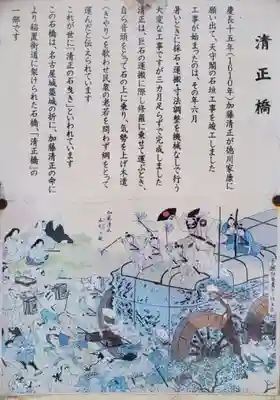 清正橋
慶長十五年（1610年）加藤清正が徳川家康に
願い出て、天守閣の石垣工事を竣工しました
工事が始まったのは、その年六月
暑いときに採石・運搬・寸法調整を機械なしで行う
大変な工事ですが三カ月足らずで完成しました
清正は、巨石の運搬に際し修羅に乗せて運ぶとき、
自ら音頭をとって石の上に乗り、気勢を上げ木遣
（きやり）を歌わせ民衆の老若を問わず綱をとって
運んだと伝えられています
これが世に、「清正の石曳き」といわれています
この石橋は、名古屋城築城の折に、加藤清正の命に
より稲置街道に架けられた石橋、「清正橋」の
一部です